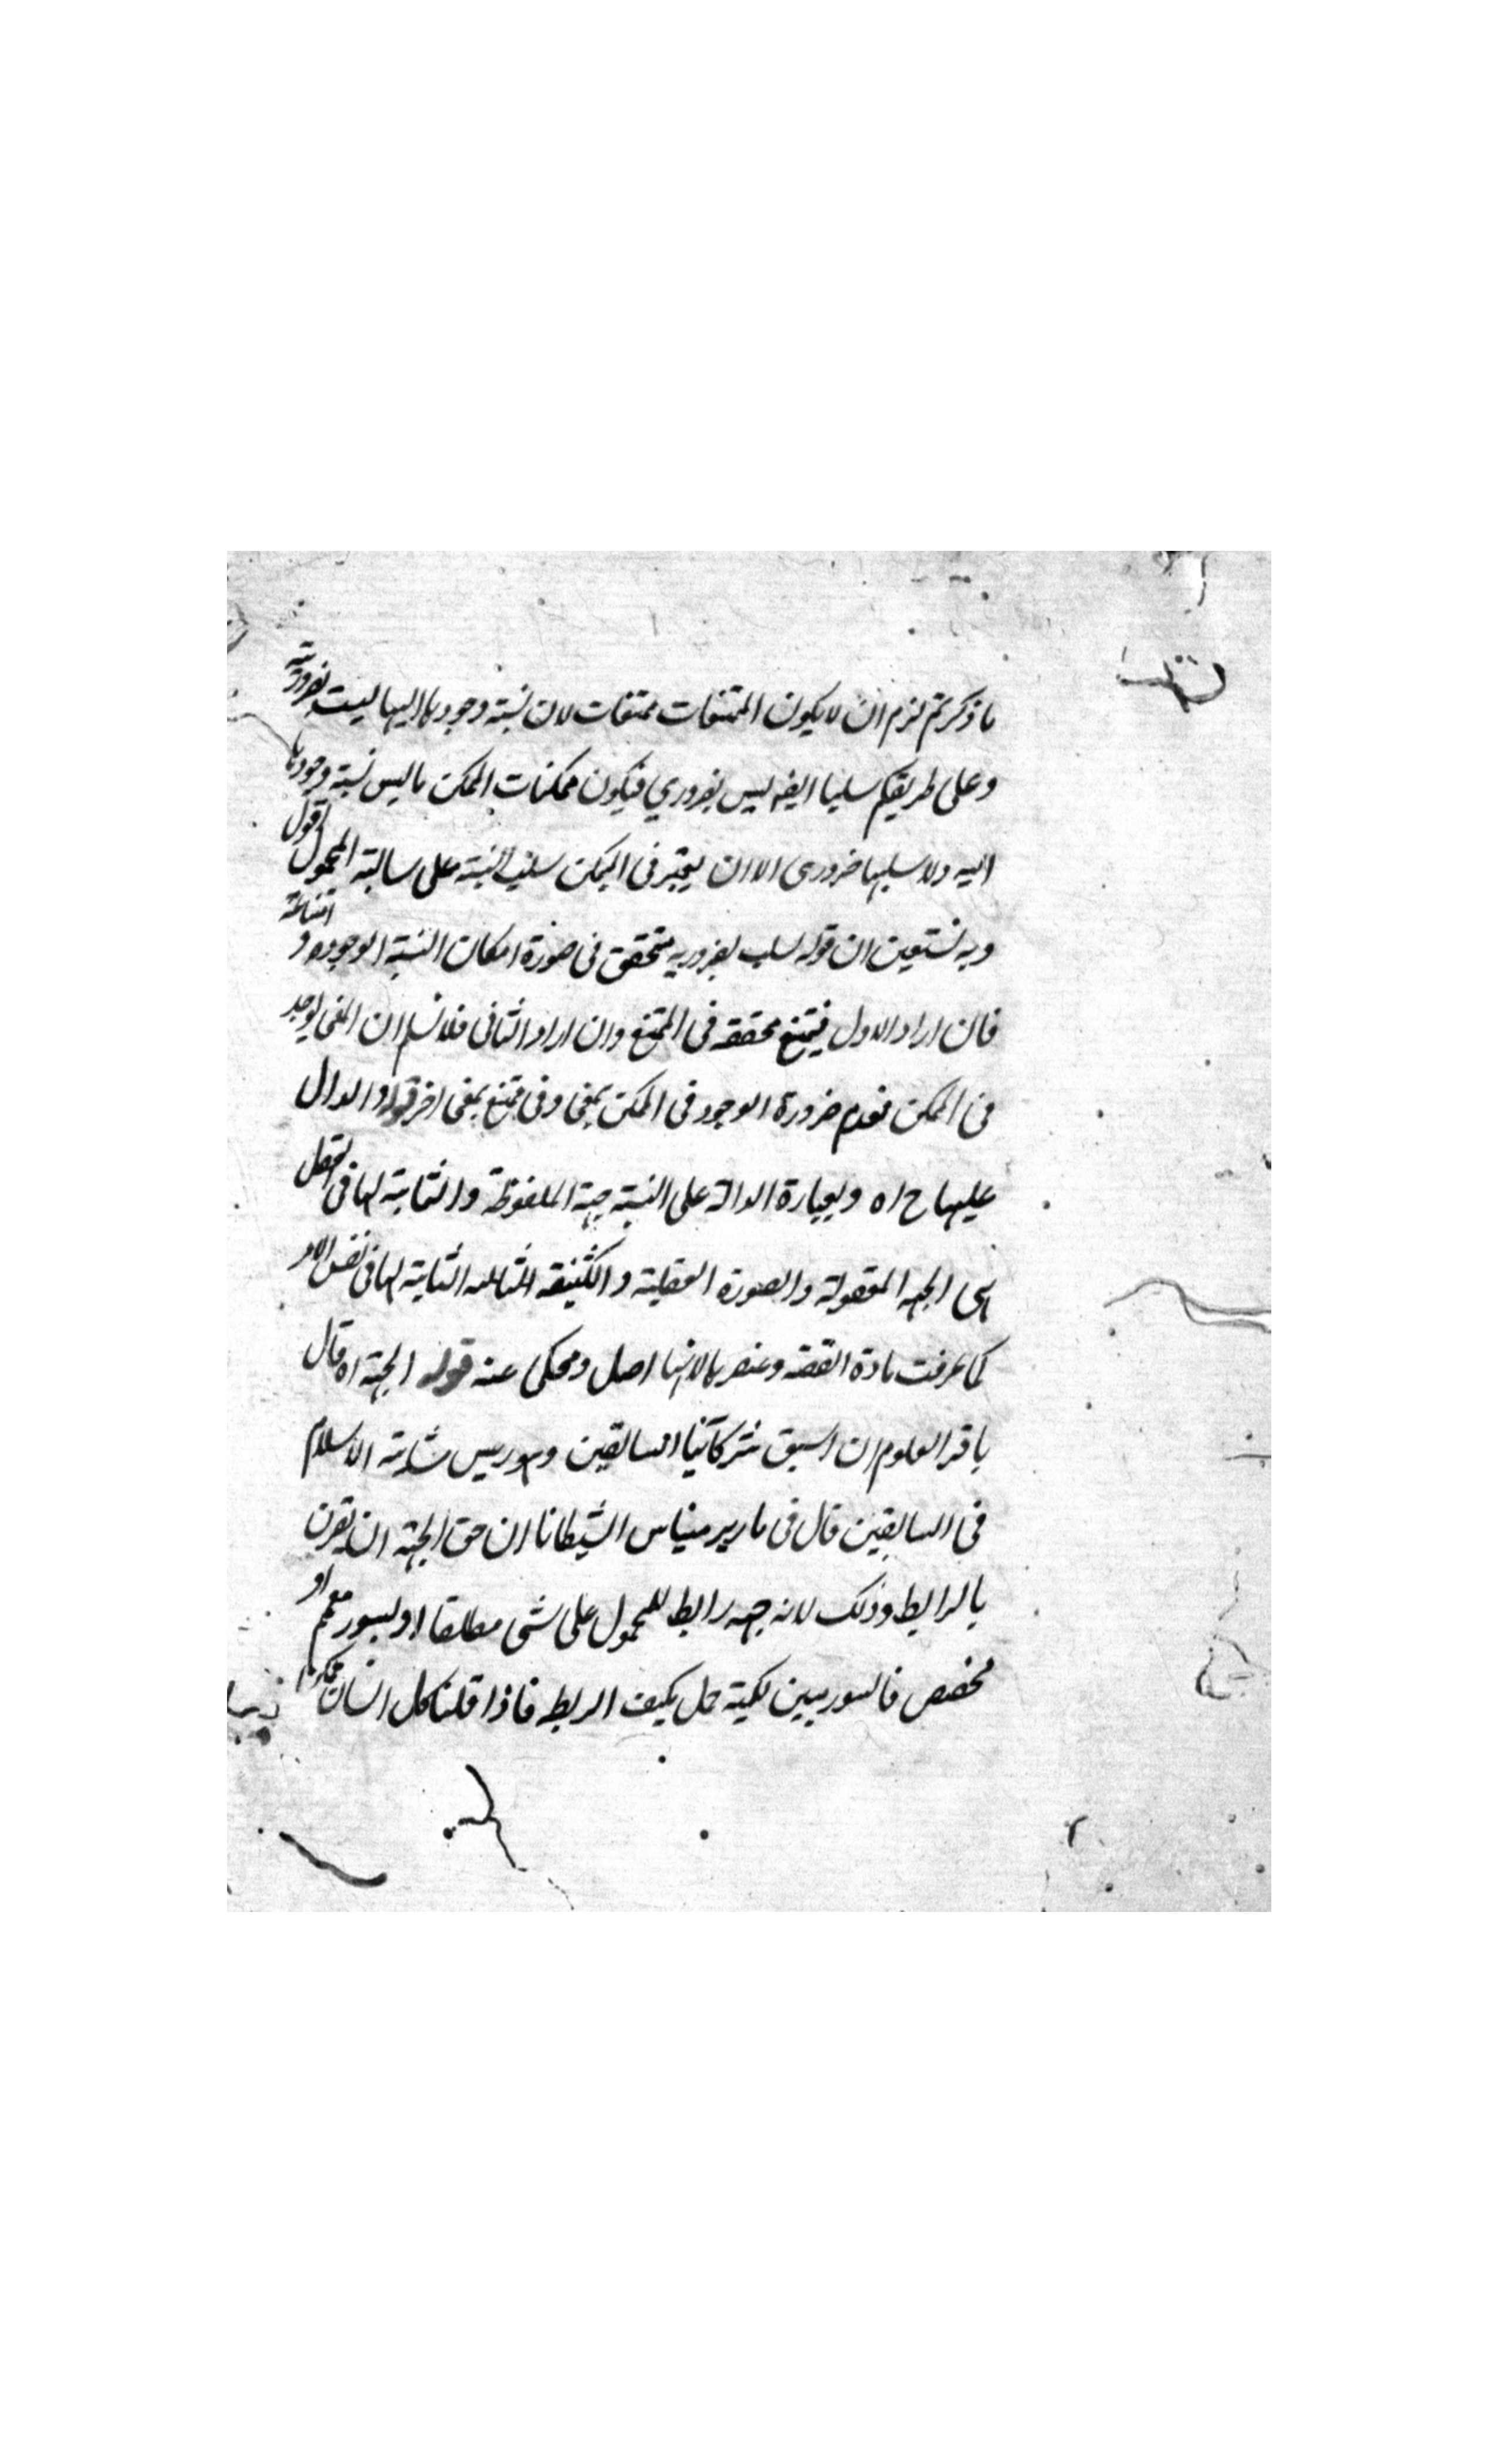 ما ذكرتم لزم ان لا يكون الممتنعات ممتنعات لان نسبة وجودها اليها ليست بضرورية
وعلى طريقكم سلبها ايضه ليس بضروري فيكون ممكنات الممكن ما ليس نسبة وجودها
اليه ولا سلبها ضرورى الا ان يعتبر فى الممكن سلب النسبة على سالبة المحمول اقول
وبه نستعين ان قوله لسلب بضروريه متحقق فى صورة امكان النسبة الوجوديه و امتناعه
فان اراد الاول فيمتنع تحققه فى الممتنع وان اراد الثانى فلا نسلم ان المعنى يوجد
فى الممكن فعدم ضرورة الوجود فى الممكن بمعنى وفى ممتنع بمعنى اخر قوله والدال
عليها ح اه وبعبارة الدالة على النسبة جهة الملفوظة والثابتة لها فى العقل
هى الجهه المعقولة والصورة العقلية و الثالثه الثابتة لها فى نفس الامر
كما عرفت مادة القضه وعنصرها لانها اصل ومحكى عنه قوله الجهة اه قال
باقر العلوم ان اسبق شركائنا السابقين وهو ريس الاسلام
فى السابقين قال فى بارير ميناس الشفا ان حق الجهة ان تقرن
بالرابط وذلك لانه جهه رابط للمحمول على شى مطلقا او بسور معمم او
مخصص فالسور يبين لكمية حمل يكيف الربط فاذا قلنا كل انسان يمكن